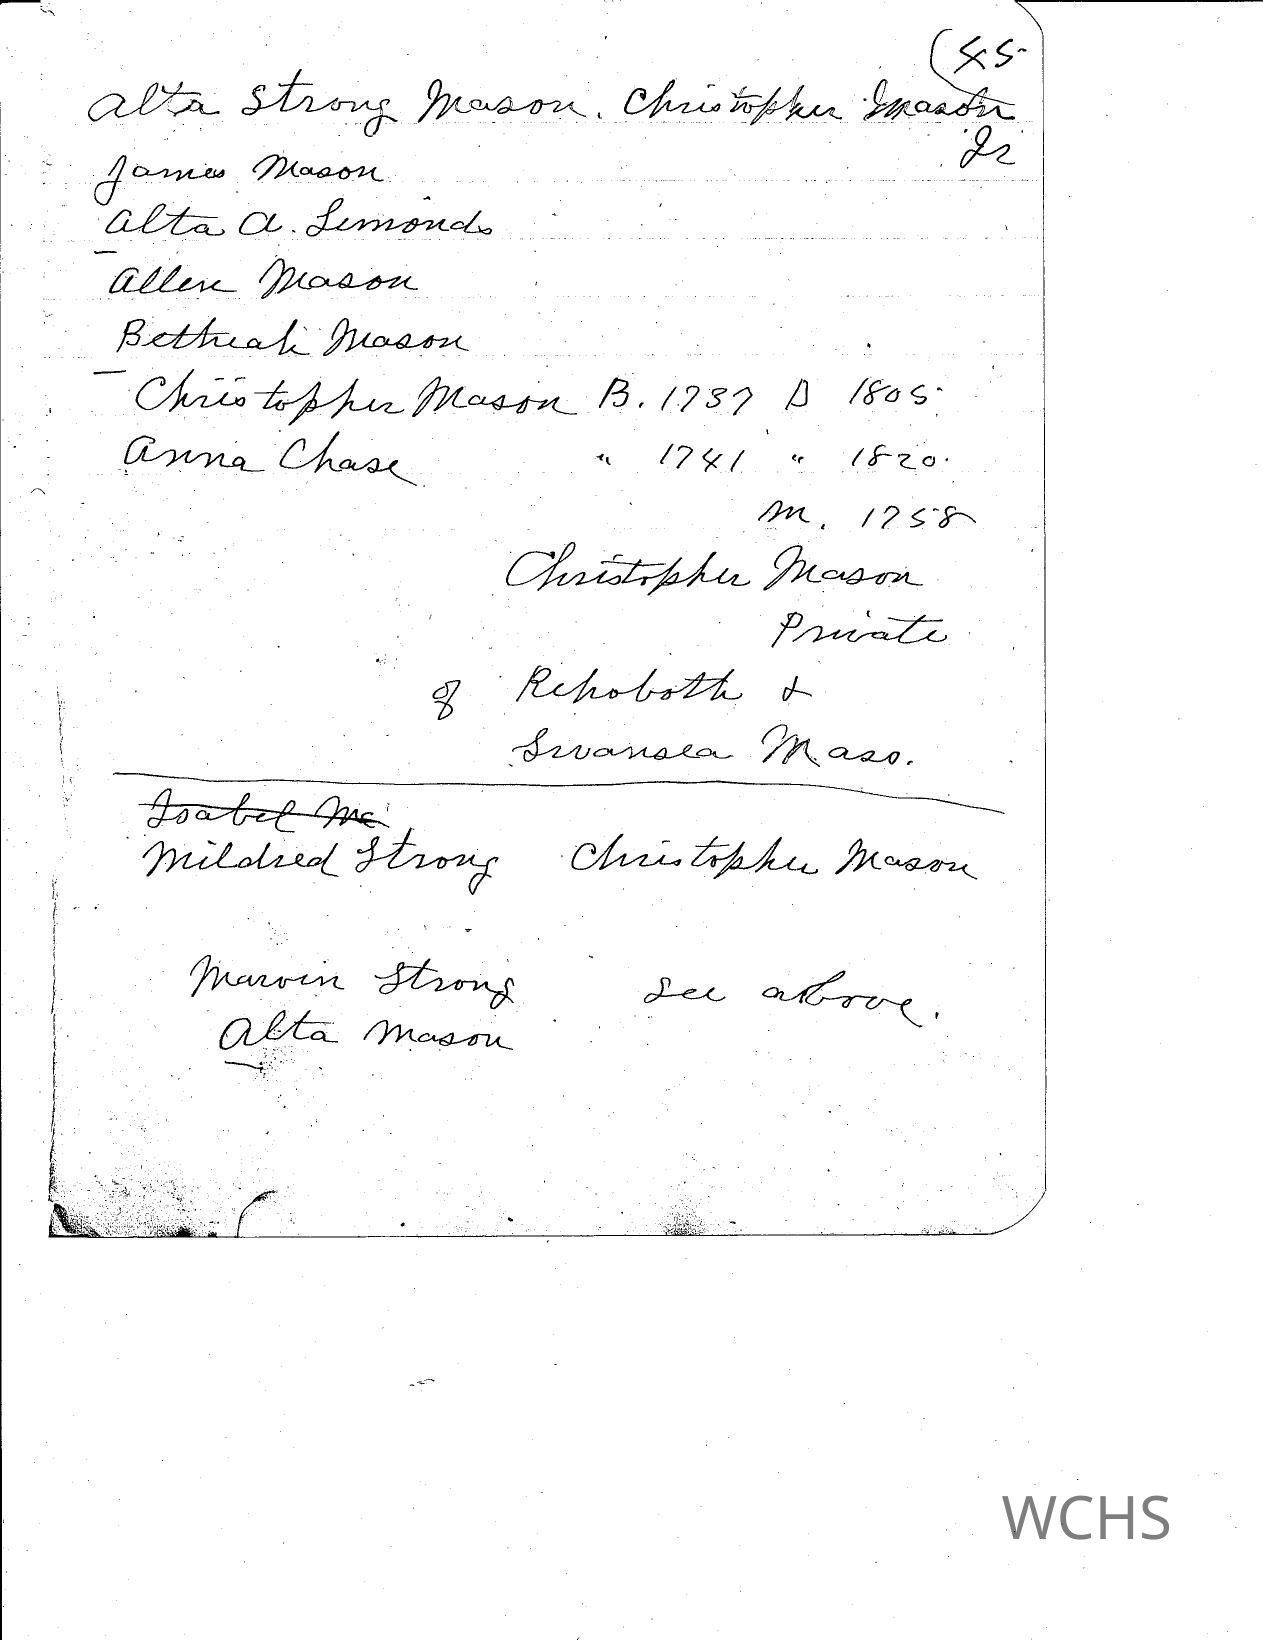 (45
Alta Strong Mason. Christopher Mason
Jr
James Mason
Alta A. Simonds
Allen Mason
Bethiah Mason
Christopher Mason B. 1737 D 1805
Anna Chase " 1741 " 1820.
m. 1758
Christopher Mason
Private
of Rehoboth &
Swansea Mass.
Isabel Mc
Mildred Strong Christopher Mason
Marvin Strong see above.
Alta Mason
WCHS